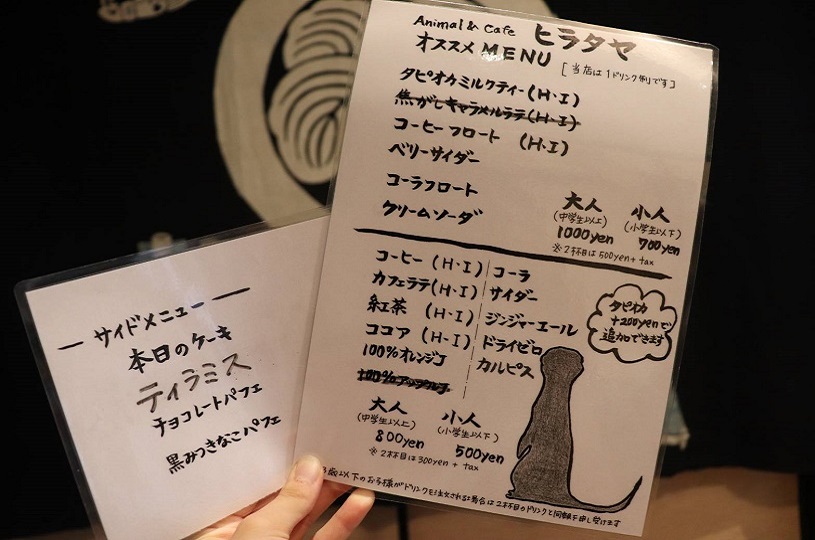 Animal & Cafe ヒラタヤ
オススメ MENU
[当店は1ドリンク制です]
タピオカミルクティー(H・I)
焦がしキャラメルラテ(H・I)
コーヒーフロート (H・I)
ベリーサイダー
コーラフロート
クリームソーダ
大人
(中学生以上)
1000yen
小人
(小学生以下)
700yen
※2杯目は500yen+tax
コーヒー (H・I)
カフェラテ(H・I)
紅茶 (H・I)
ココア (H・I)
100%オレンジJ
100%アップルJ
コーラ
サイダー
ジンジャーエール
ドライゼロ
カルピス
タピオカ
+200yenで
追加できます
大人
(中学生以上)
800yen
小人
(小学生以下)
500yen
※2杯目は300yen+tax
歳以下のお子様がドリンクを注文される場合は2杯目のドリンクと同額を申し受けます
― サイドメニュー ―
本日のケーキ
ティラミス
チョコレートパフェ
黒みつきなこパフェ